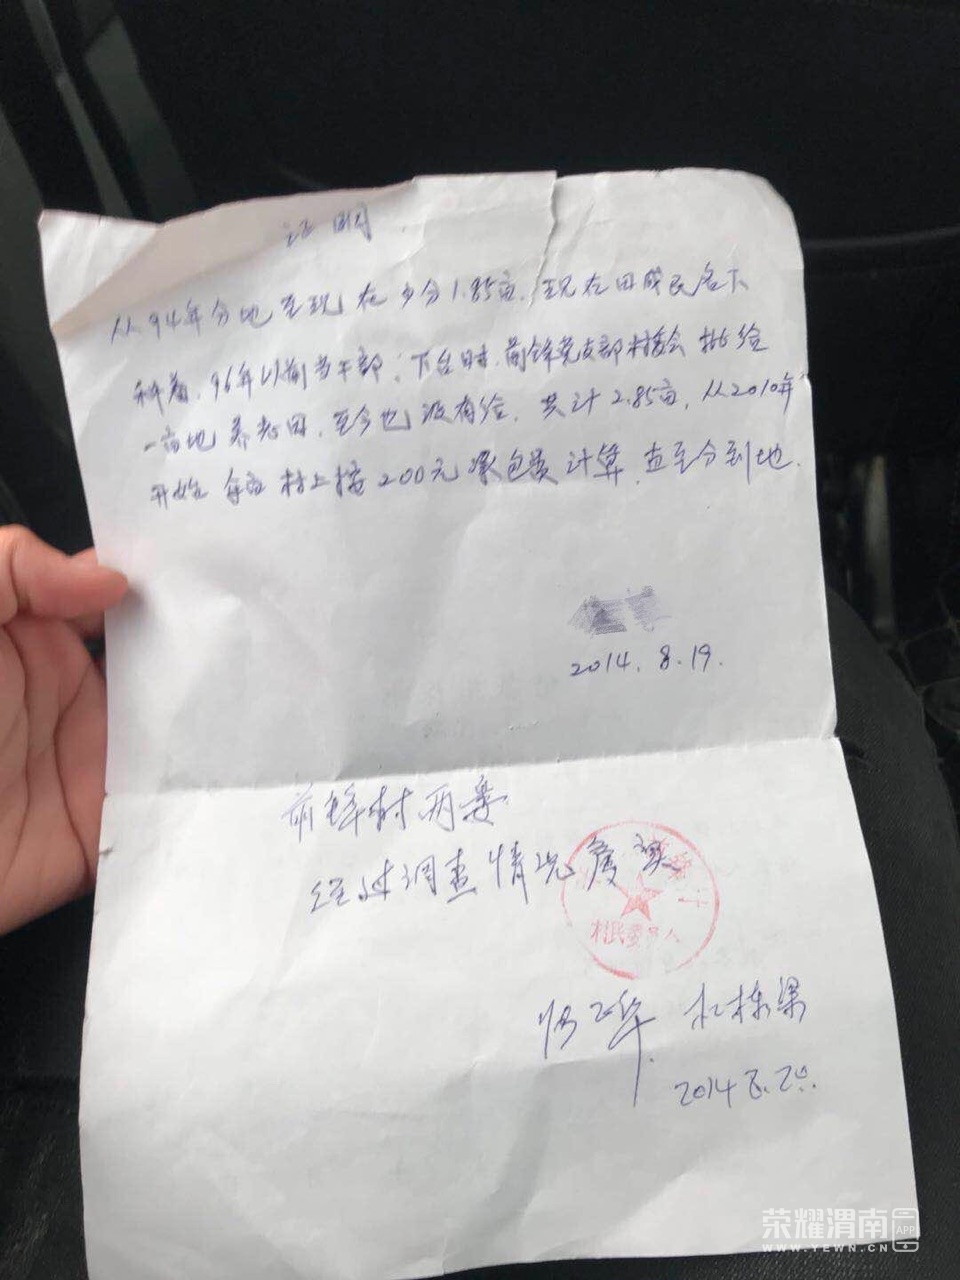 证明
从94年分地至现在少分1.85亩.现在田成民名下
种着.96年以前当干部,下台时.前锋党支部村委会批给
一亩地养老田,至今也没有给.共计2.85亩,从2010年
开始每亩村上按200元承包费计算.直至分到地.
2014.8.19.
前锋村两委
经过调查情况属实
村民委员
杜栋梁
2014.8.20.
荣耀渭南
APP
WWW.YEWN.CN